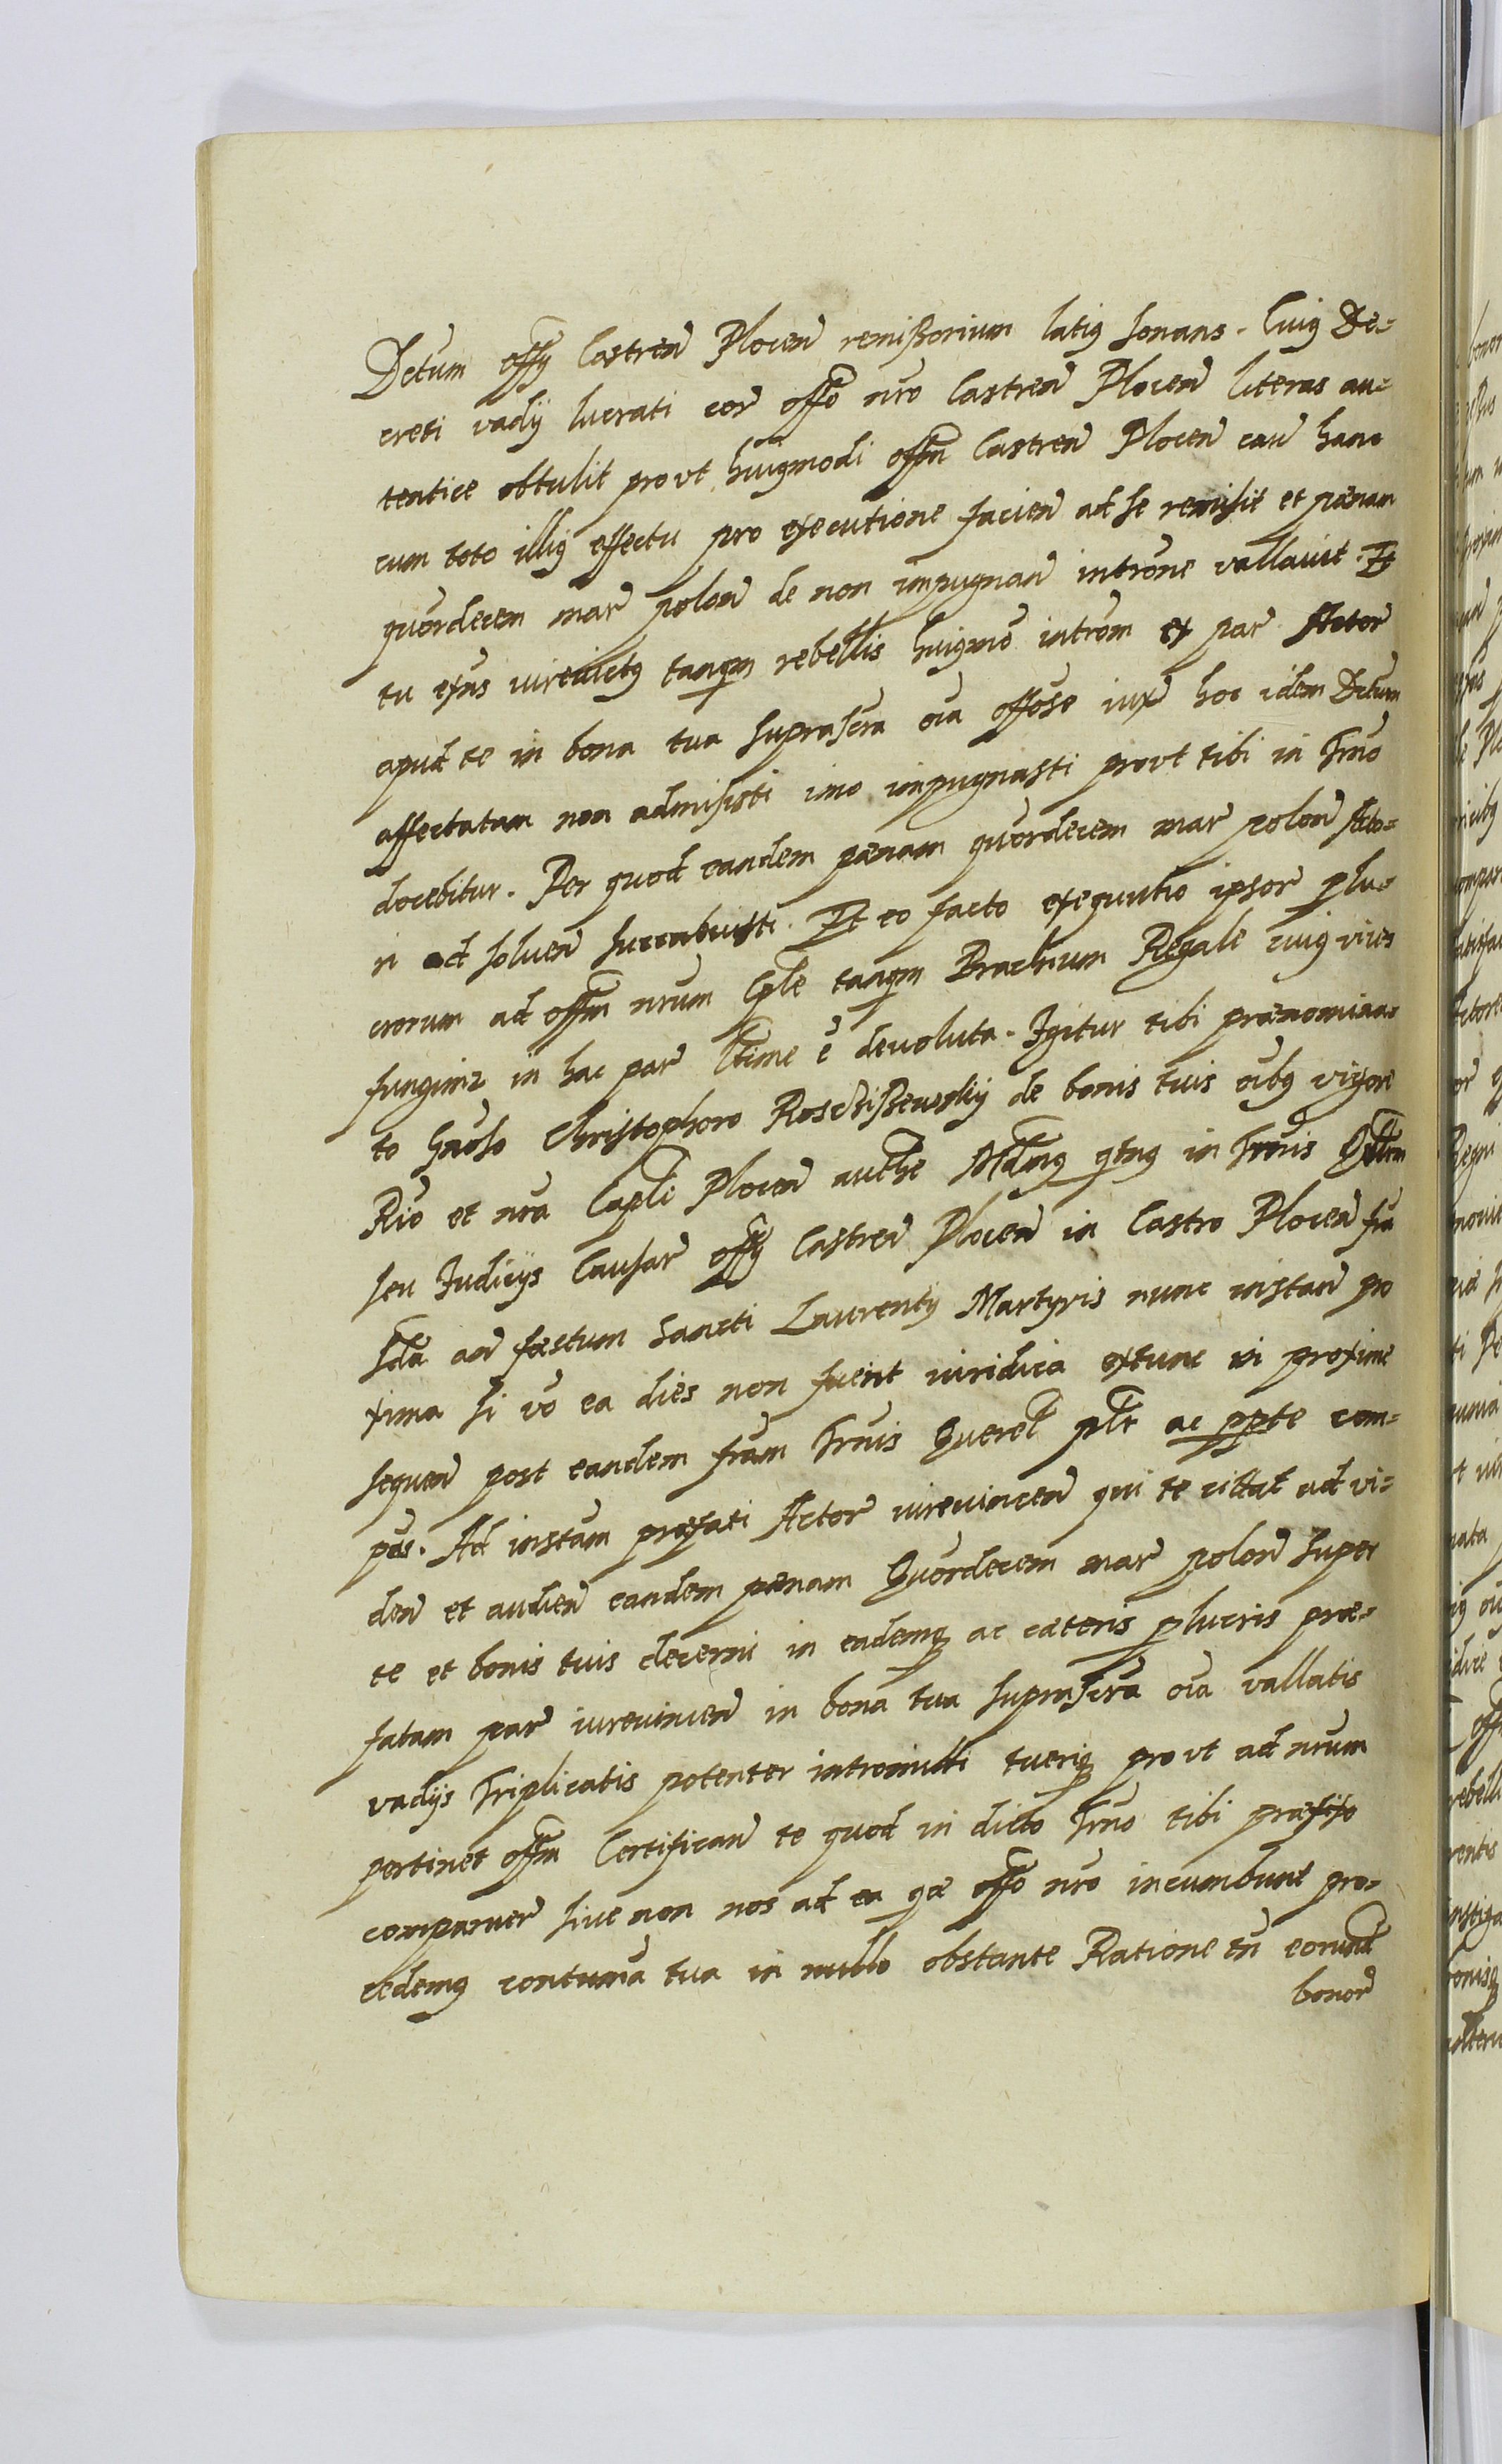 Dctum offy Castren Plocen remissorium latig sonans. Cuig De-
creti vadij lucrati cor offo nro Castren Plocen literas au-
tentice obtulit prout huigmodi offm Castren Plocen cau hanc
cum toto illig effectu pro executione facien ad se remisit et pænam
quordecem mar polon de non impugnan introne vallauit. Et
tu exns iurevictg tanqm rebellis huigmo introm ex par Actor
apud te in bona tua suprascra oia offose iux hoc idem Dctum
affectatam non admisisti imo impugnasti prout tibi in Trno
docebitur. Per quod eandem pænam quordecem mar polon Acto-
ri ad soluen succubuisti. Et eo facto exequutio ipsor plu-
crorum ad offm nrum Cple tanqm Brachium Regale cuig vices
fungimr in hac par ltime e deuoluta. Igitur tibi prænomina-
to Gnoso Christophoro Rosciszewskij de bonis tuis oibg vigore
Rio et nra Capli Plocen authe Mdamg qtng in Trnis Qrlrm
seu Judicijs Causar offy Castren Plocen in Castro Plocen fra
scda an fæstum Sancti Laurentij Martyris nunc instan pro
xima si vo ea dies non fuerit iuridica extunc in proxime
sequen post eandem fram Trnis Querel plr ac ppte com-
pas. Ad instam præfati Actor iurevincen qui te cittat ad vi-
den et audien eandem pænam Quordecem mar polon super
te et bonis tuis decerni in eademq ac cæteris plucris præ-
fatam par iurevincen in bona tua suprascra oia vallatis
vadijs triplicatis potenter intromitti tueriq prout ad nrum
pertinet offm Certifican te quod in dicto Trno tibi præfixo
comparuer siue non nos ad ea qæ offo nro incumbunt pro-
cedemg contuma tua in nullo obstante Ratione tn eorund
bonor